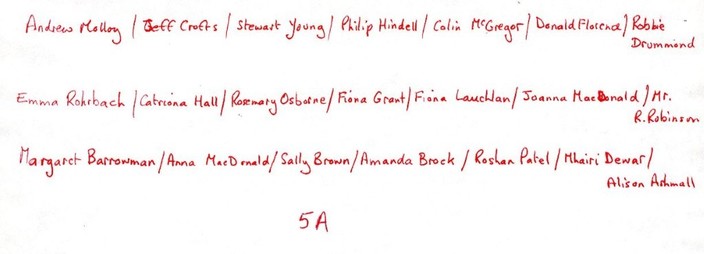 Andrew Molloy / Jeff Crofts / Stewart Young / Philip Hindell / Colin McGregor / Donald Florence / Robbie
Drummond
Emma Rohrbach / Catriona Hall / Rosemary Osborne / Fiona Grant / Fiona Lauchlan / Joanna MacDonald / Mr.
R. Robinson
Margaret Barrowman / Anna MacDonald / Sally Brown / Amanda Brock / Roshan Patel / Mhairi Dewar /
Alison Ashmall
5A